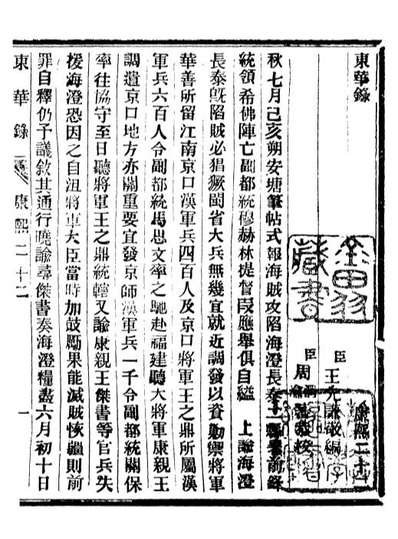 東華錄
臣王先謙敬編
臣周
康熙二十
秋七月己亥朔安塘筆帖式報海賊攻陷海澄長泰十
統領希佛陣亡副都統穆赫林提督段應舉俱自縊 上諭海澄
長泰旣陷賊必猖獗閩省大兵無幾宜就近調發以資勦禦將軍
華善所留江南京口漢軍兵四百人及京口將軍王之鼎所屬漢
軍兵六百人令副都統馬思文率之馳赴福建聽大將軍康親王
調遣京口地方亦關重要宜發京師漢軍兵一千令副都統關保
率往協守至日聽將軍王之鼎統轄又諭康親王傑書等官兵失
援海澄恐因之自沮將軍大臣當時加鼓勵果能滅賊恢疆則前
罪自釋仍予議敘其通行曉諭尋傑書奏海澄糧盡六月初十日
東華錄 康熙二十二 一